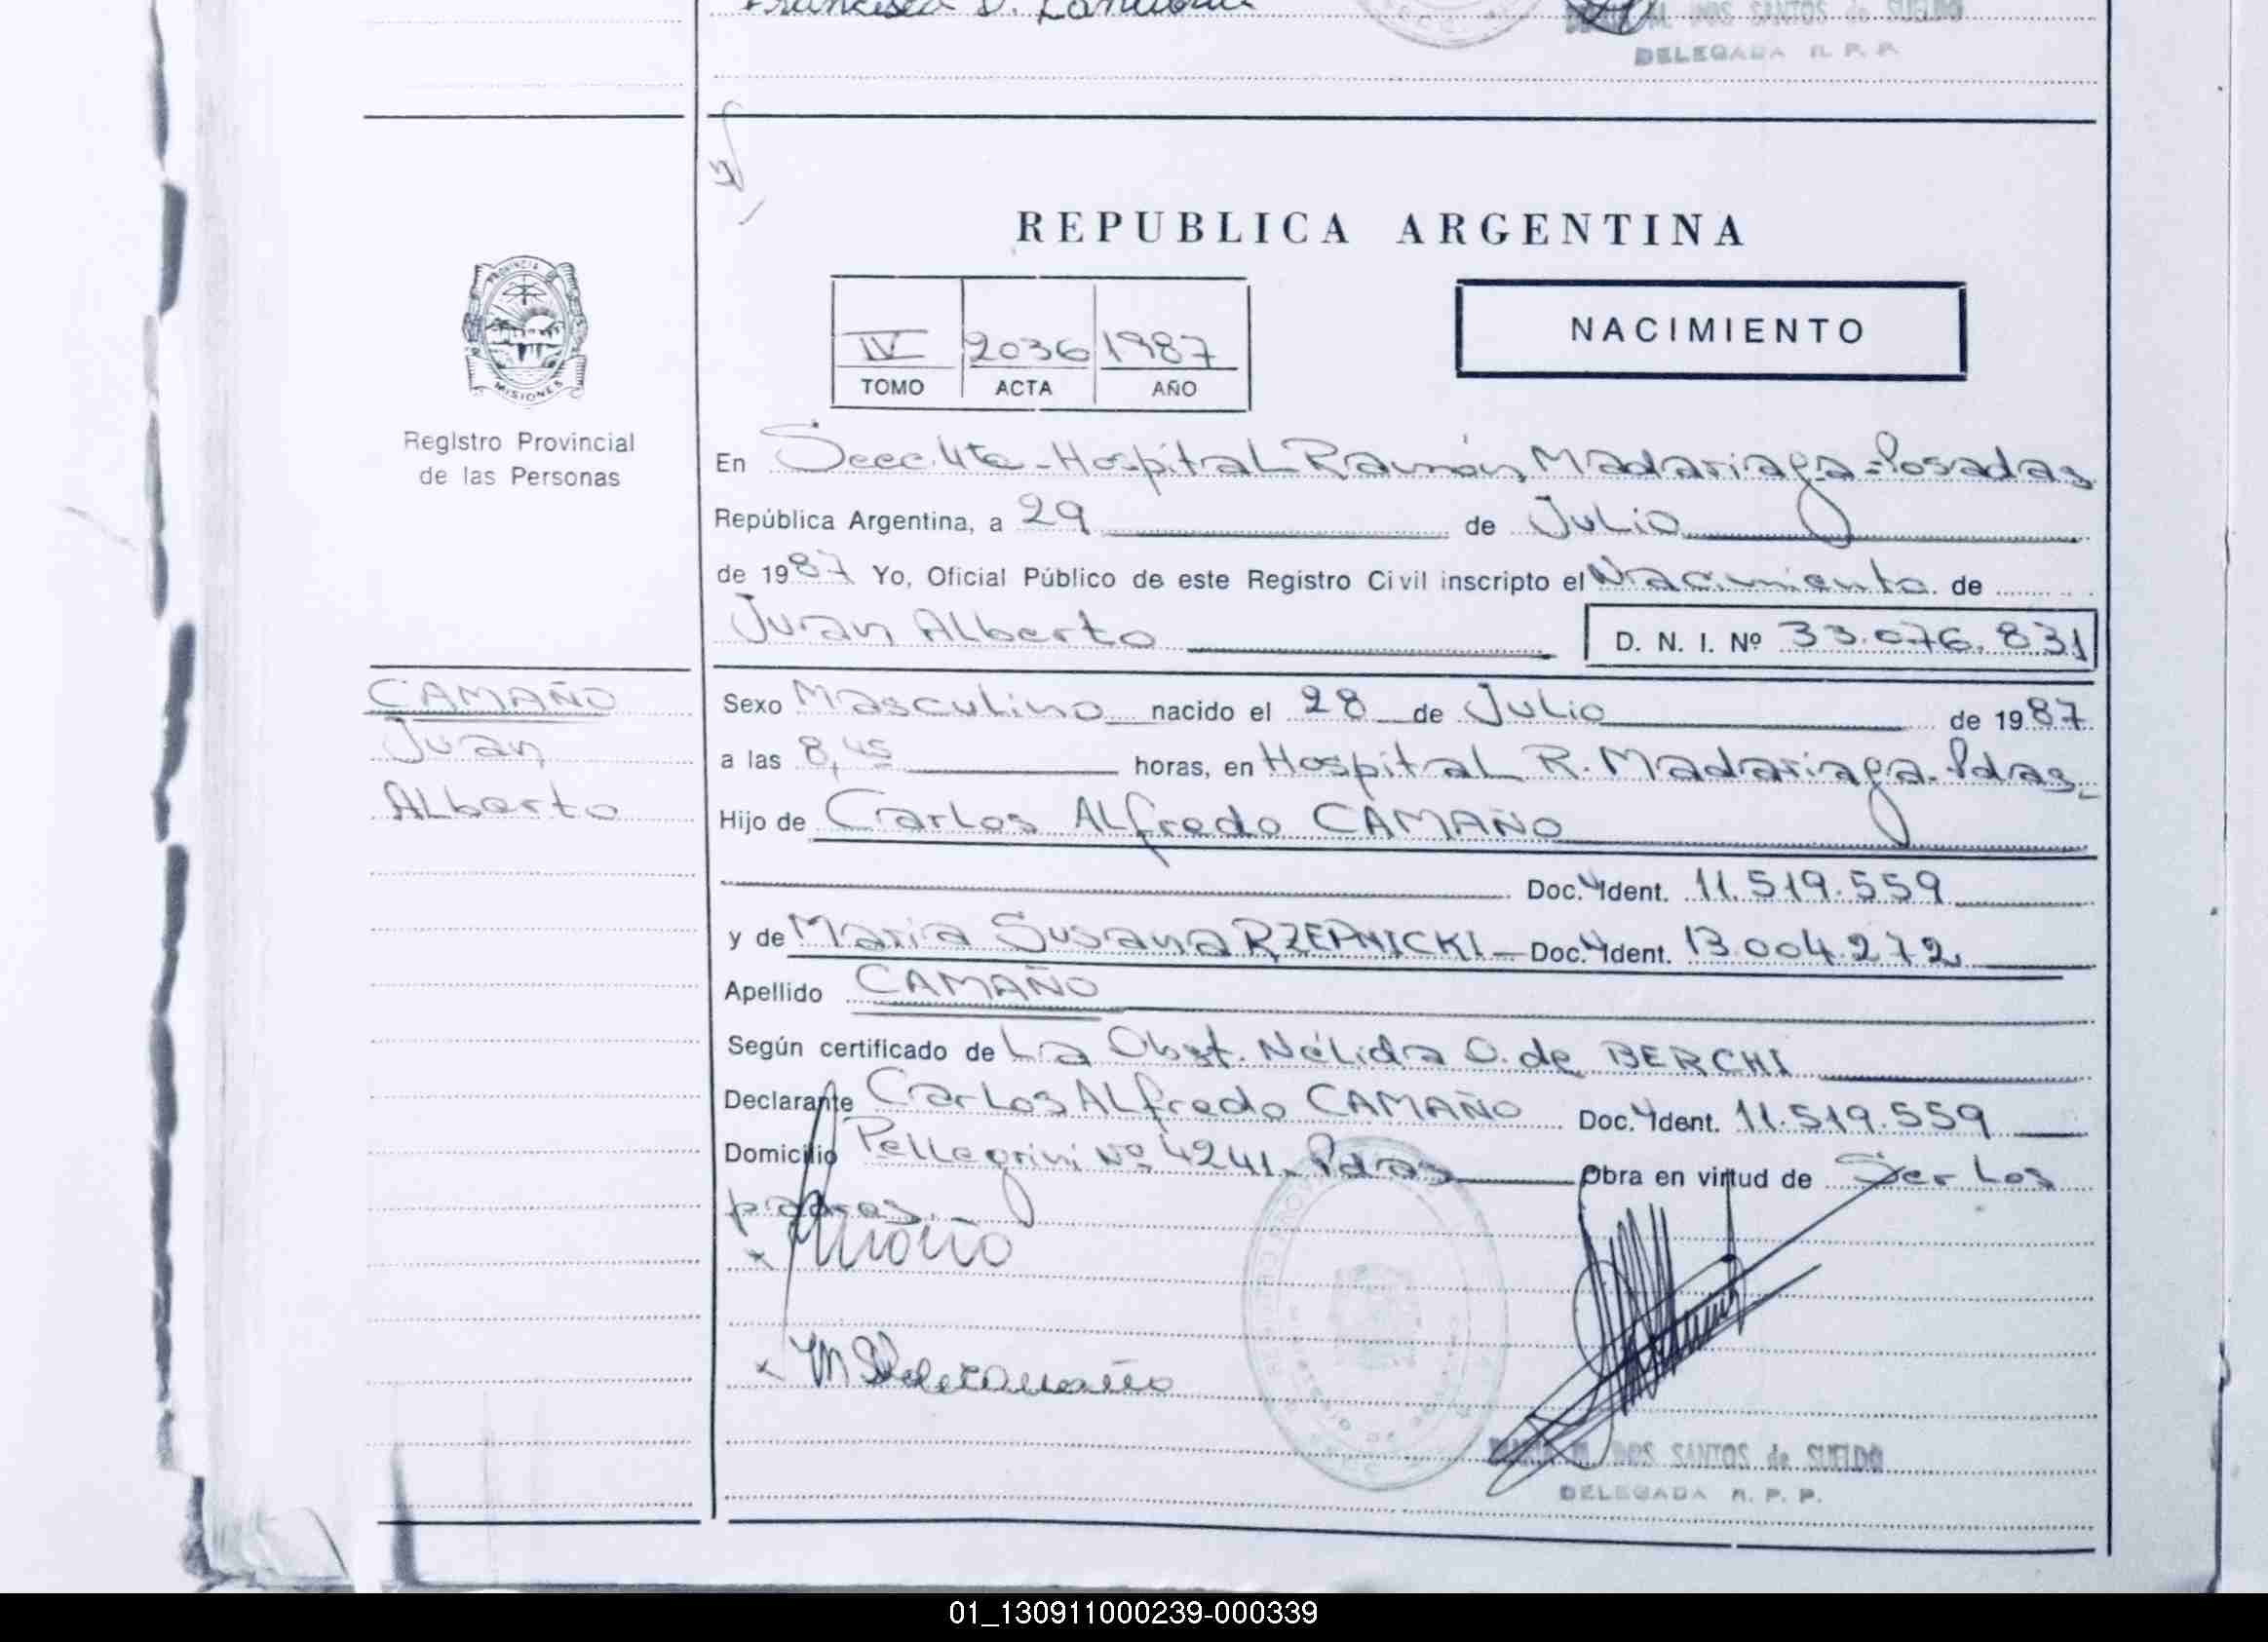 DOS SANTOS de SUELDO
DELEGADA R. P. P.
REPUBLICA ARGENTINA
PROVINCIA DE
MISIONES
Registro Provincial
de las Personas
IV 2036 1987
TOMO ACTA AÑO
NACIMIENTO
En Secc. 4ta - Hospital Ramón Madariaga - Posadas
República Argentina, a 29 de Julio
de 1987 Yo, Oficial Público de este Registro Civil inscripto el Nacimiento de
Juan Alberto D. N. I. Nº 33.076.831
CAMAÑO
Juan
Alberto
Sexo Masculino nacido el 28 de Julio de 1987
a las 8,45 horas, en Hospital R. Madariaga - Pdas -
Hijo de Carlos Alfredo CAMAÑO
Doc. Ident. 11.519.559
y de Maria Susana RZEPNICKI - Doc. Ident. 13.004.272
Apellido CAMAÑO
Según certificado de La Obst. Nélida O. de BERCHI
Declarante Carlos Alfredo CAMAÑO Doc. Ident. 11.519.559
Domicilio Pellegrini Nº 4241 - Pdas Obra en virtud de Ser Los
padres.
DOS SANTOS de SUELDO
DELEGADA R. P. P.
01_130911000239-000339